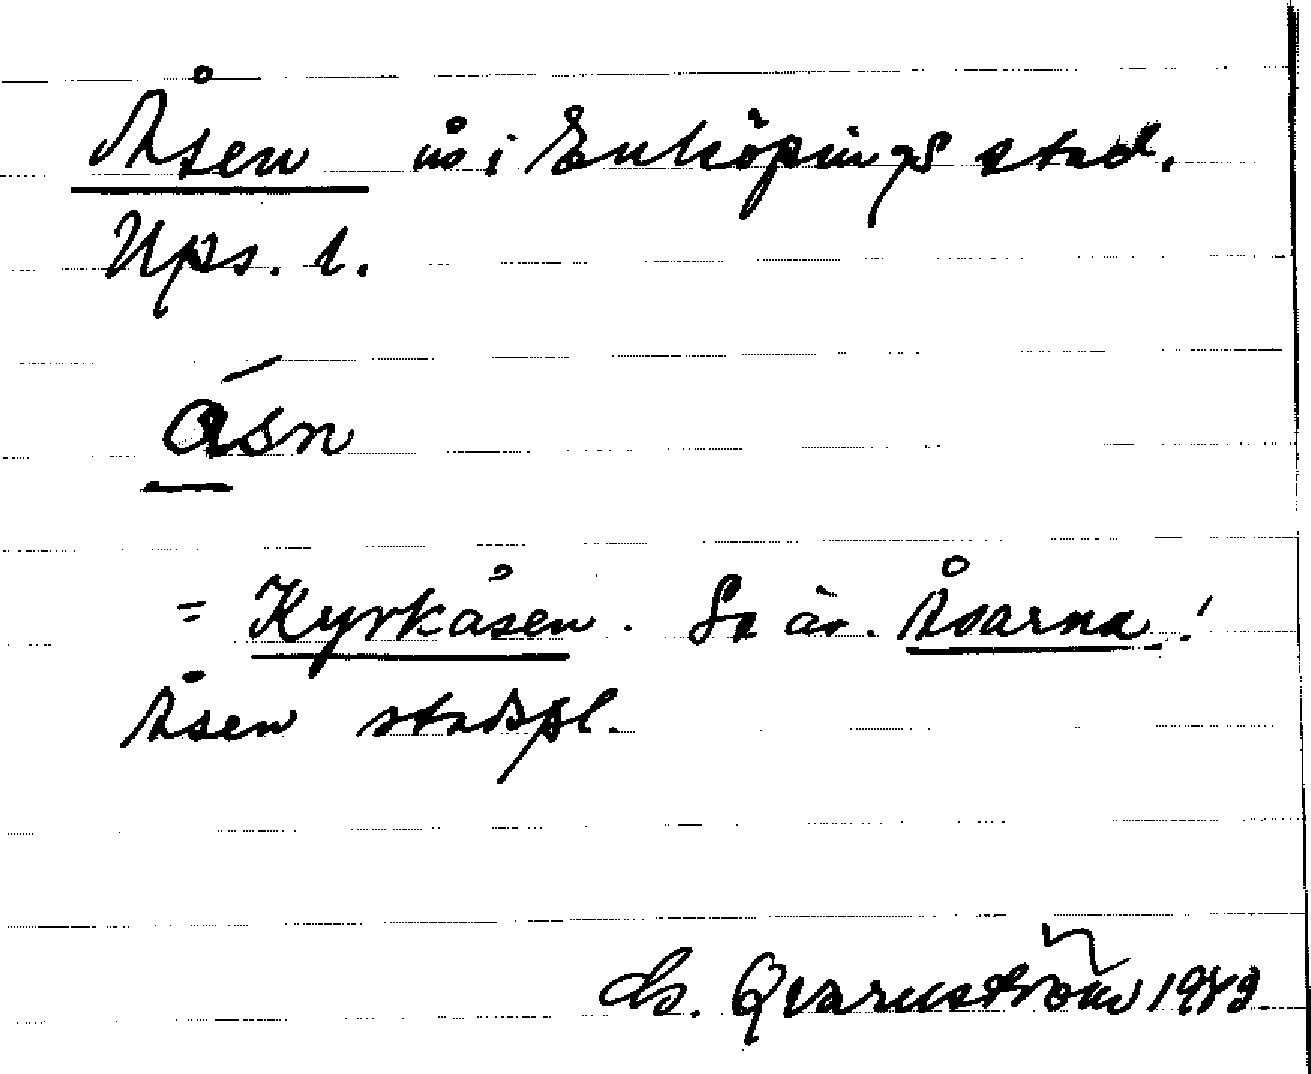 Åsen ås i Enköpings stad.
Ups. l.
ásn
= Kyrkåsen. Se äv. Åsarna!
Åsen stadspl.
Qvarnström